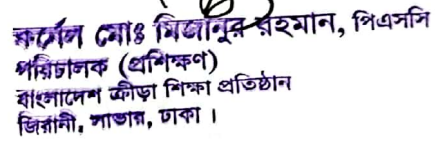 কর্ণেল মোঃ মিজানুর রহমান, পিএসসি
পরিচালক (প্রশিক্ষণ)
বাংলাদেশ ক্রীড়া শিক্ষা প্রতিষ্ঠান
জিরানী, সাভার, ঢাকা।